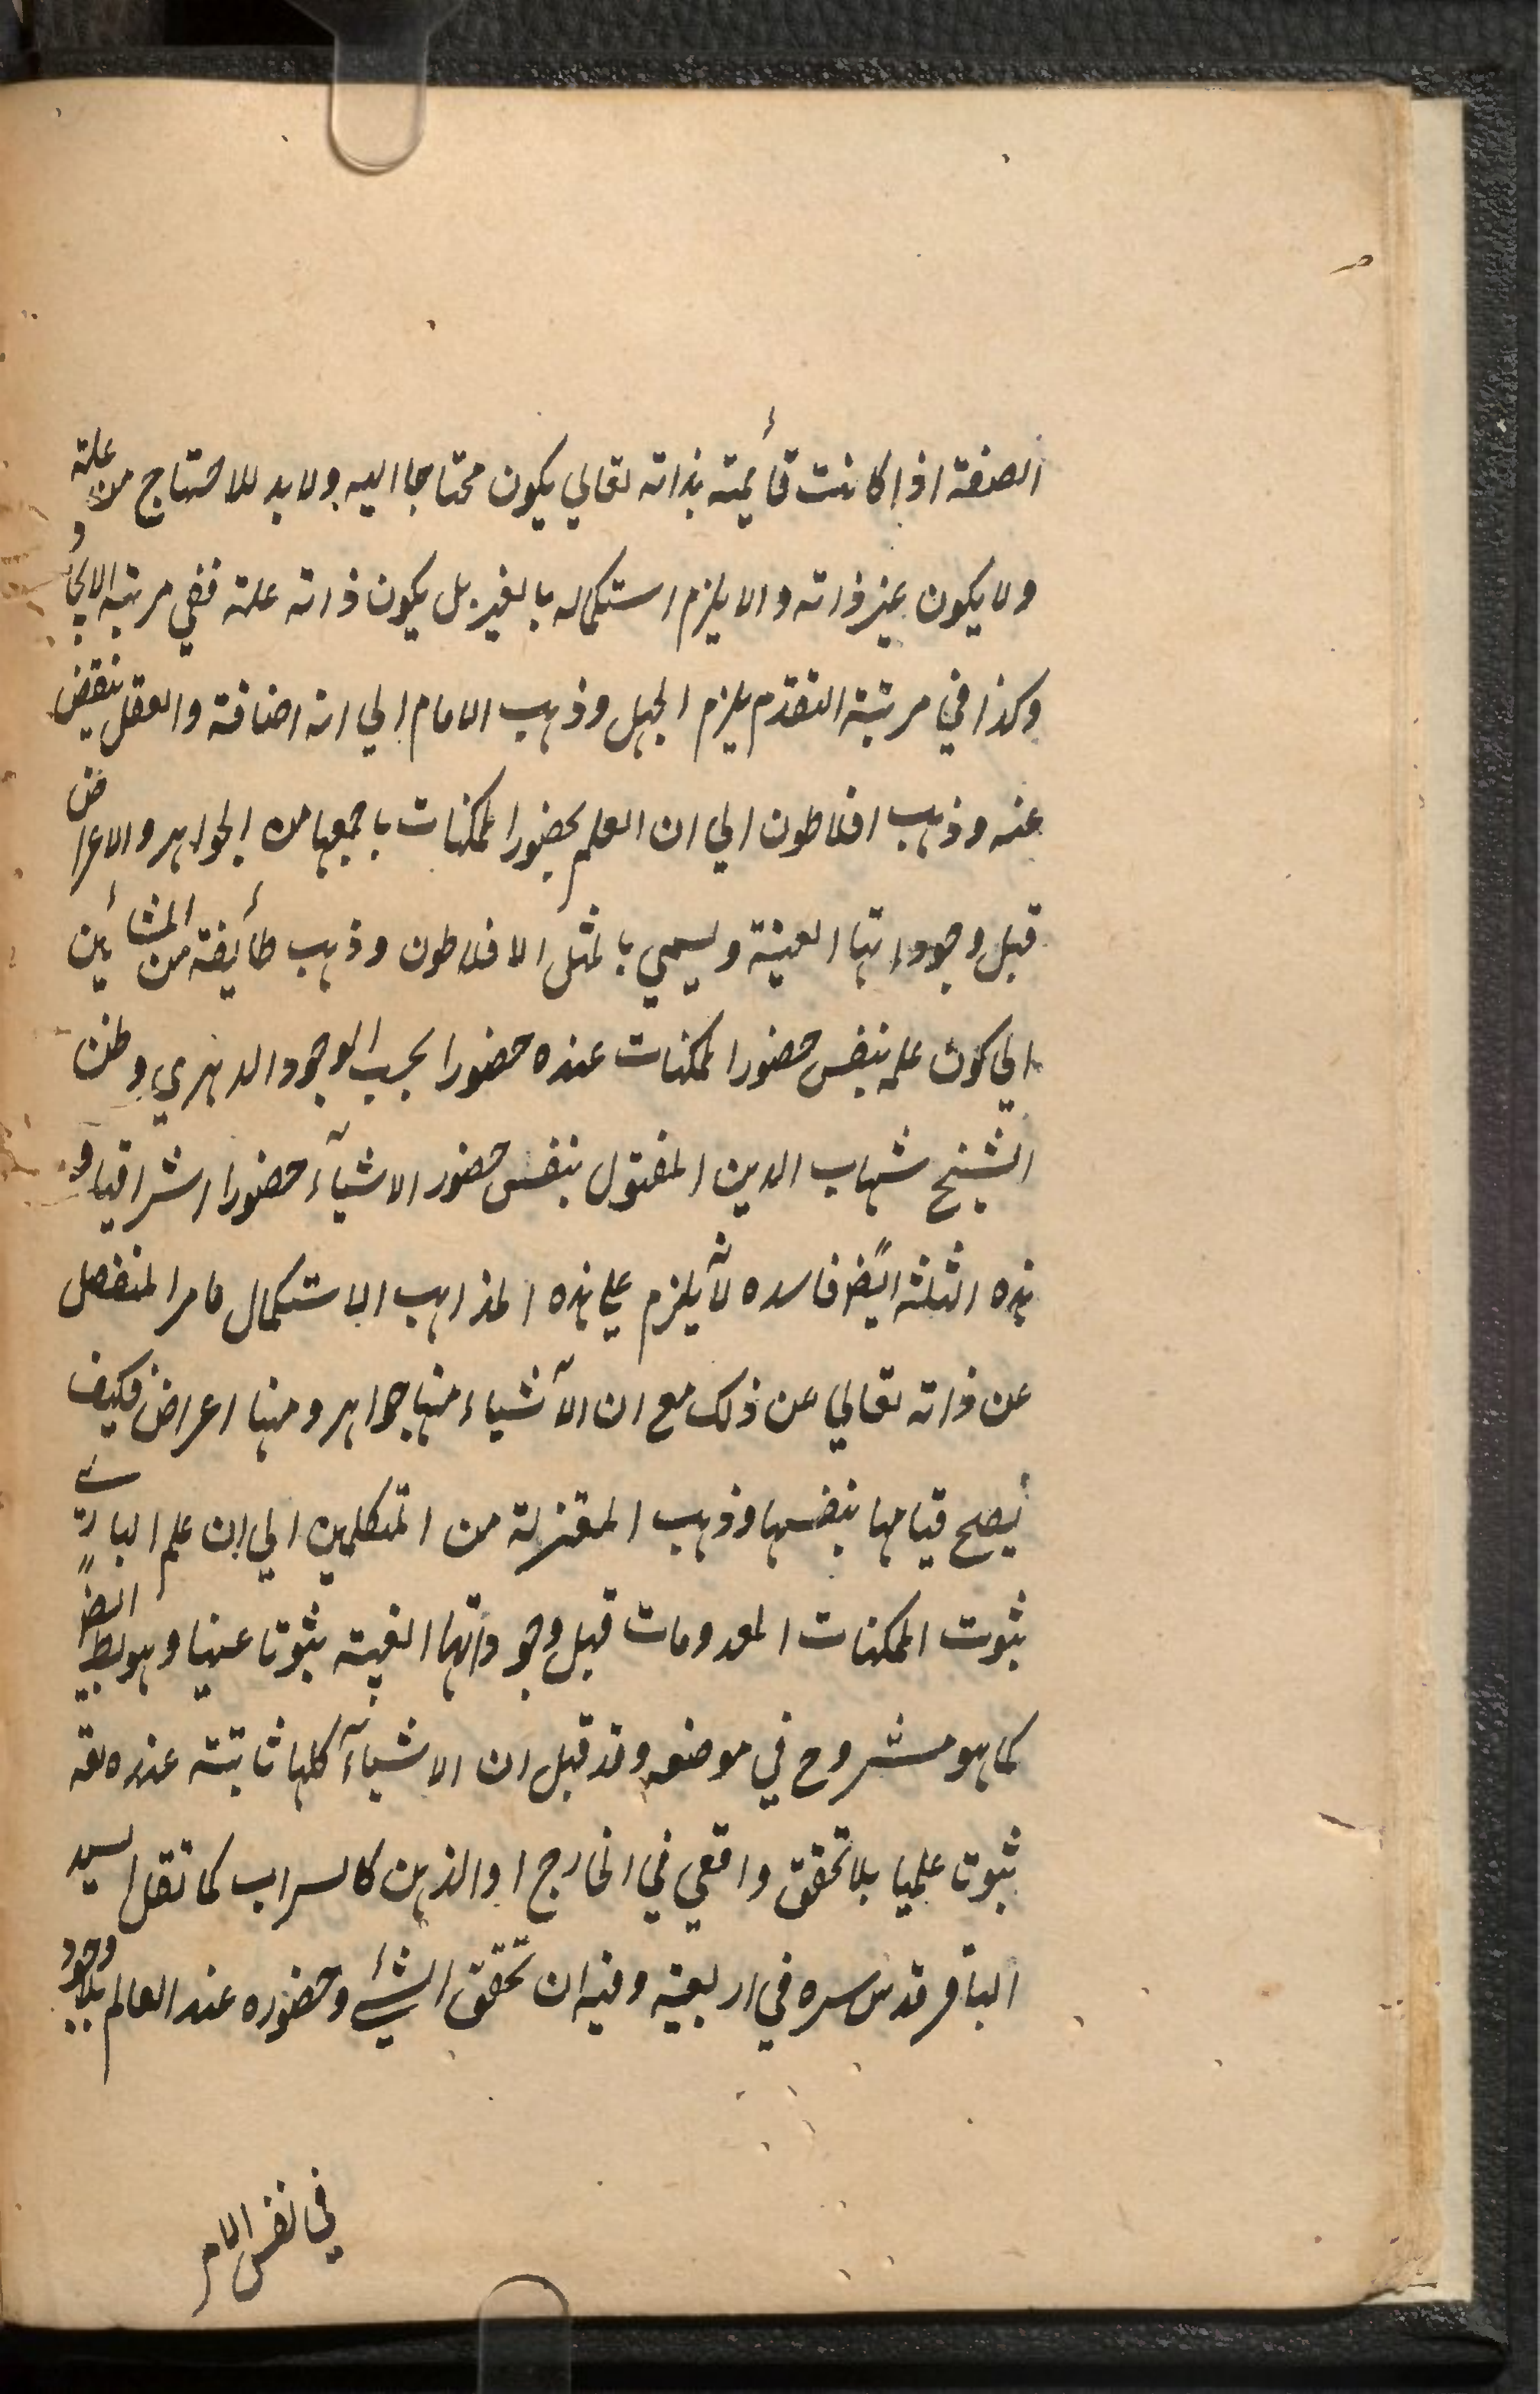 الصفة اذا كانت قأيمة بذاته تعالي يكون محتاجا اليه ولا بد للاحتياج من علة
ولا يكون غير ذاته والا يلزم استكماله بالغير بل يكون ذاته علة ففي مرتبة الايجاد
وكذا في مرتبة التقدم يلزم الجهل وذهب الامام الي انه اضافة والعقل ينقض
عنه وذهب افلاطون الي ان العلم بحضور الممكنات باجمعها من الجواهر والاعراض
قبل وجوداتها العينية ويسمي بالمثل الافلاطون وذهب طأيفة من المشأين
الي كون علمه بنفس حضور الممكنات عنده حضورا بحسب الوجود الدهري وظن
الشيخ شهاب الدين المقتول بنفس حضور الاشيآء حضورا اشراقيا و
هذه الثلثة ايضً فاسده لانه يلزم علي هذه المذاهب الاستكمال بامر المنفصل
عن ذاته تعالي عن ذلك مع ان الآشياء منها جواهر ومنها اعراض فكيف
يصح قيامها بنفسها وذهب المعتزلة من المتكلمين الي ان علم الباري
بثبوت الممكنات المعدومات قبل وجوداتها العينية بثوتا عينيا وهو بط ايضً
كما هو مشروح في موضعه وقد قيل ان الاشيآء كلها ثابتة عنده تعه
ثبوت علميا بلا تحقق واقعي في الخارج او الذهن كالسراب كما نقل السيد
الباقر قدس سره في اربعينه وفيه ان تحقق الشيء وحضوره عند العالم بلا وجود
في نفس الامر